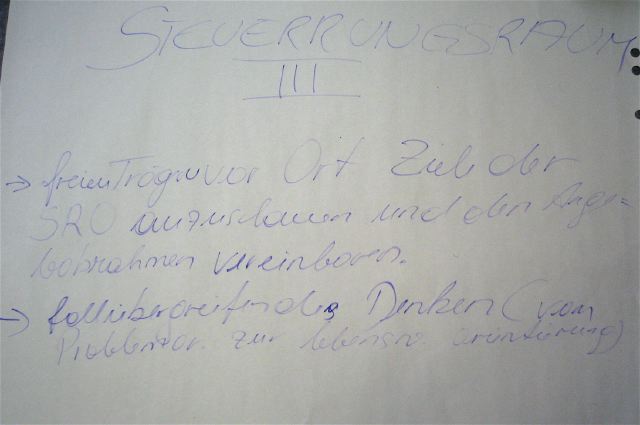 STEUERRUNGSRAUM
III
→ freien Trägern vor Ort Ziele der
SRO anzuschauen und den Ange-
botsrahmen vereinbaren.
→ fallübergreifendes Denken (von
Problemor. zur lebensw. orientierung)